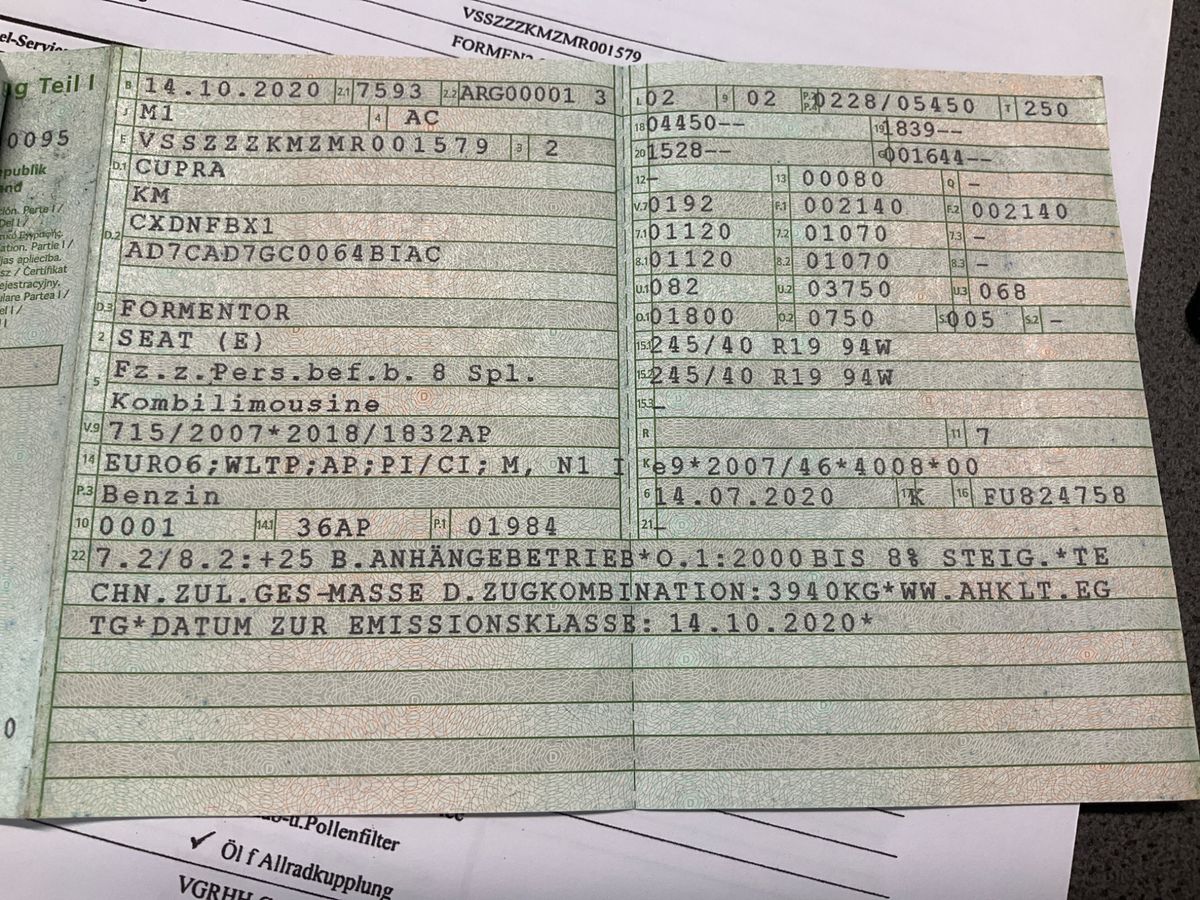 VSSZZZKMZMR001579
el-Service
ug Teil I
0095
epublik
and
B 14.10.2020 2.1 7593 2.2 ARG00001 3
J M1 4 AC
E VSSZZZKMZMR001579 3 2
D.1 CUPRA
KM
D.2 CXDNFBX1
AD7CAD7GC0064BIAC
D.3 FORMENTOR
2 SEAT (E)
5 Fz.z.Pers.bef.b. 8 Spl.
Kombilimousine
V.9 715/2007*2018/1832AP
14 EURO6;WLTP;AP;PI/CI; M, N1 I
P.3 Benzin
10 0001 14.1 36AP P.1 01984
L 02 9 02 0228/05450 T 250
18 04450-- 19 1839--
20 1528-- G 001644--
12 - 13 00080 Q -
V.7 0192 F.1 002140 F.2 002140
7.1 01120 7.2 01070 7.3 -
8.1 01120 8.2 01070 8.3 -
U.1 082 U.2 03750 U.3 068
O.1 01800 O.2 0750 S.1 005 S.2 -
15.1 245/40 R19 94W
15.2 245/40 R19 94W
15.3 -
R 11 7
K e9*2007/46*4008*00
6 14.07.2020 17 K 16 FU824758
21 -
22 7.2/8.2:+25 B.ANHÄNGEBETRIEB*O.1:2000 BIS 8% STEIG.*TE
CHN.ZUL.GES-MASSE D.ZUGKOMBINATION:3940KG*WW.AHKLT.EG
TG*DATUM ZUR EMISSIONSKLASSE: 14.10.2020*
0
-u.Pollenfilter
✓ Öl f Allradkupplung